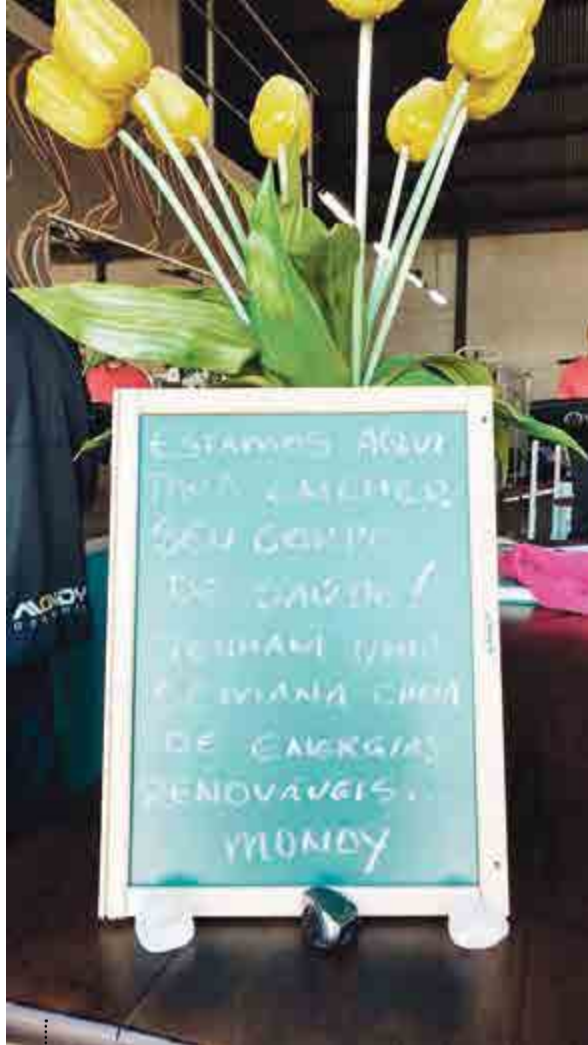 ESTAMOS AQUI
PARA ENCHER
SEU CORPO
DE SAÚDE!
TENHAM UMA
SEMANA CHEIA
DE ENERGIAS
RENOVÁVEIS...
MONDY
MONDY